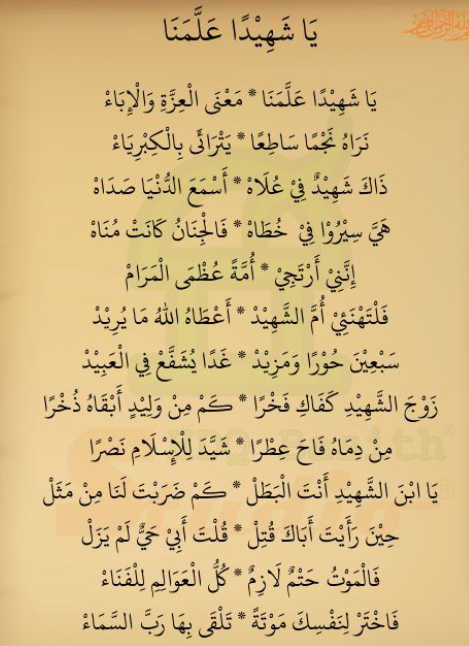 يَا شَهِيْدًا عَلَّمَنَا
يَا شَهِيْدًا عَلَّمَنَا * مَعْنَى الْعِزَّةِ وَالْإِبَاءْ
نَرَاهُ نَجْمًا سَاطِعًا * يَتْرَائَى بِالْكِبْرِيَاءْ
ذَاكَ شَهِيْدٌ فِيْ عُلَاهْ * أَسْمَعَ الدُّنْيَا صَدَاهْ
هَيَّ سِيْرُوْا فِيْ خُطَاهْ * فَالْجِنَانُ كَانَتْ مُنَاهْ
إِنَّنِيْ أَرْتَجِيْ * أُمَّةً عُظْمَى الْمَرَامْ
فَلْتَهْنَئِيْ أُمَّ الشَّهِيْدْ * أَعْطَاهُ اللهُ مَا يُرِيْدْ
سَبْعِيْنَ حُوْرًا وَمَزِيْدْ * غَدًا يُشَفَّعْ فِي الْعَبِيْدْ
زَوْجَ الشَّهِيْدِ كَفَاكِ فَخْرًا * كَمْ مِنْ وَلِيْدٍ أَبْقَاهُ ذُخْرًا
مِنْ دِمَاهُ فَاحَ عِطْرًا * شَيَّدَ لِلْإِسْلَامِ نَصْرًا
يَا ابْنَ الشَّهِيْدِ أَنْتَ الْبَطَلْ * كَمْ ضَرَبْتَ لَنَا مِنْ مَثَلْ
حِيْنَ رَأَيْتَ أَبَاكَ قُتِلْ * قُلْتَ أَبِيْ حَيٌّ لَمْ يَزَلْ
فَالْمَوْتُ حَتْمٌ لَازِمٌ * كُلُّ الْعَوَالِمِ لِلْفَنَاءْ
فَاخْتَرْ لِنَفْسِكَ مَوْتَةً * تَلْقَى بِهَا رَبَّ السَّمَاءْ